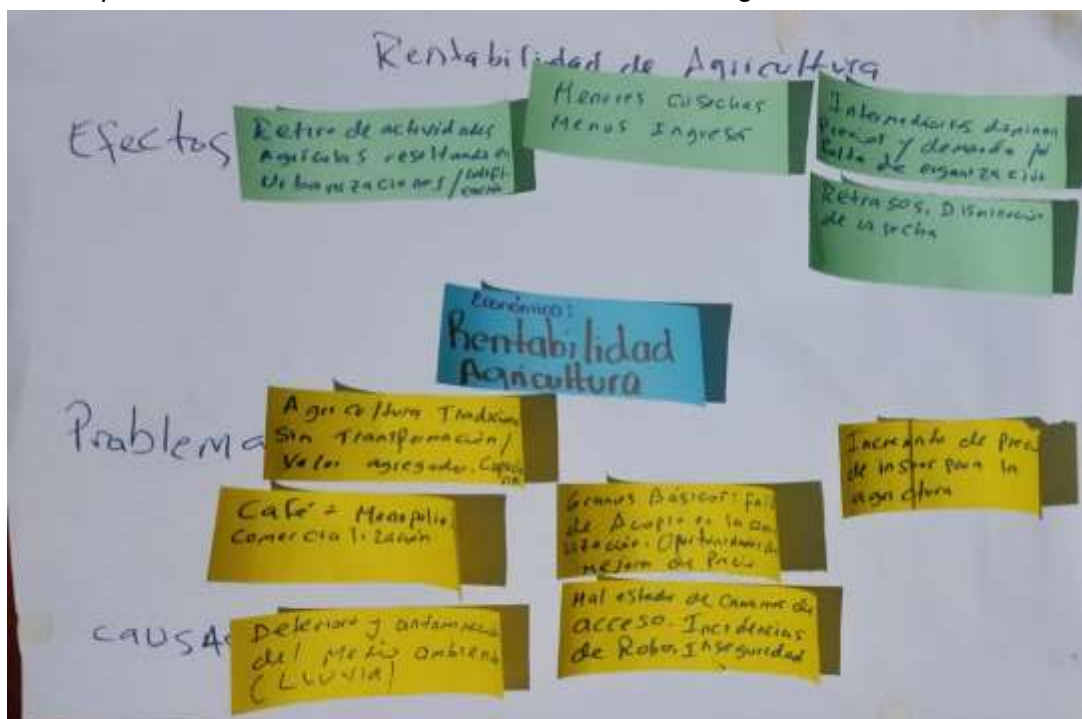 Rentabilidad de Agricultura
Efectos
Retiro de actividades
Agrícolas resultando en
Urbanizaciones/
Menores cosechas
Menos Ingreso
Intermediarios dominan
Precios y demanda por
falta de organización
Retrasos. Disminución
de cosecha
Económico:
Rentabilidad
Agricultura
Problema
Agricultura Tradicion
Sin Transformación/
Valor agregado.
Café = Monopolio
Comercialización
Granos Básicos: Fal
de Acopio
Oportunidad de
mejora de Precio
Incremento de Precio
de insumos para la
agricultura
causas
Deterioro y contaminación
del Medio ambiente
(LLUVIA)
Mal estado de caminos de
acceso. Incidencias
de Robo. Inseguridad